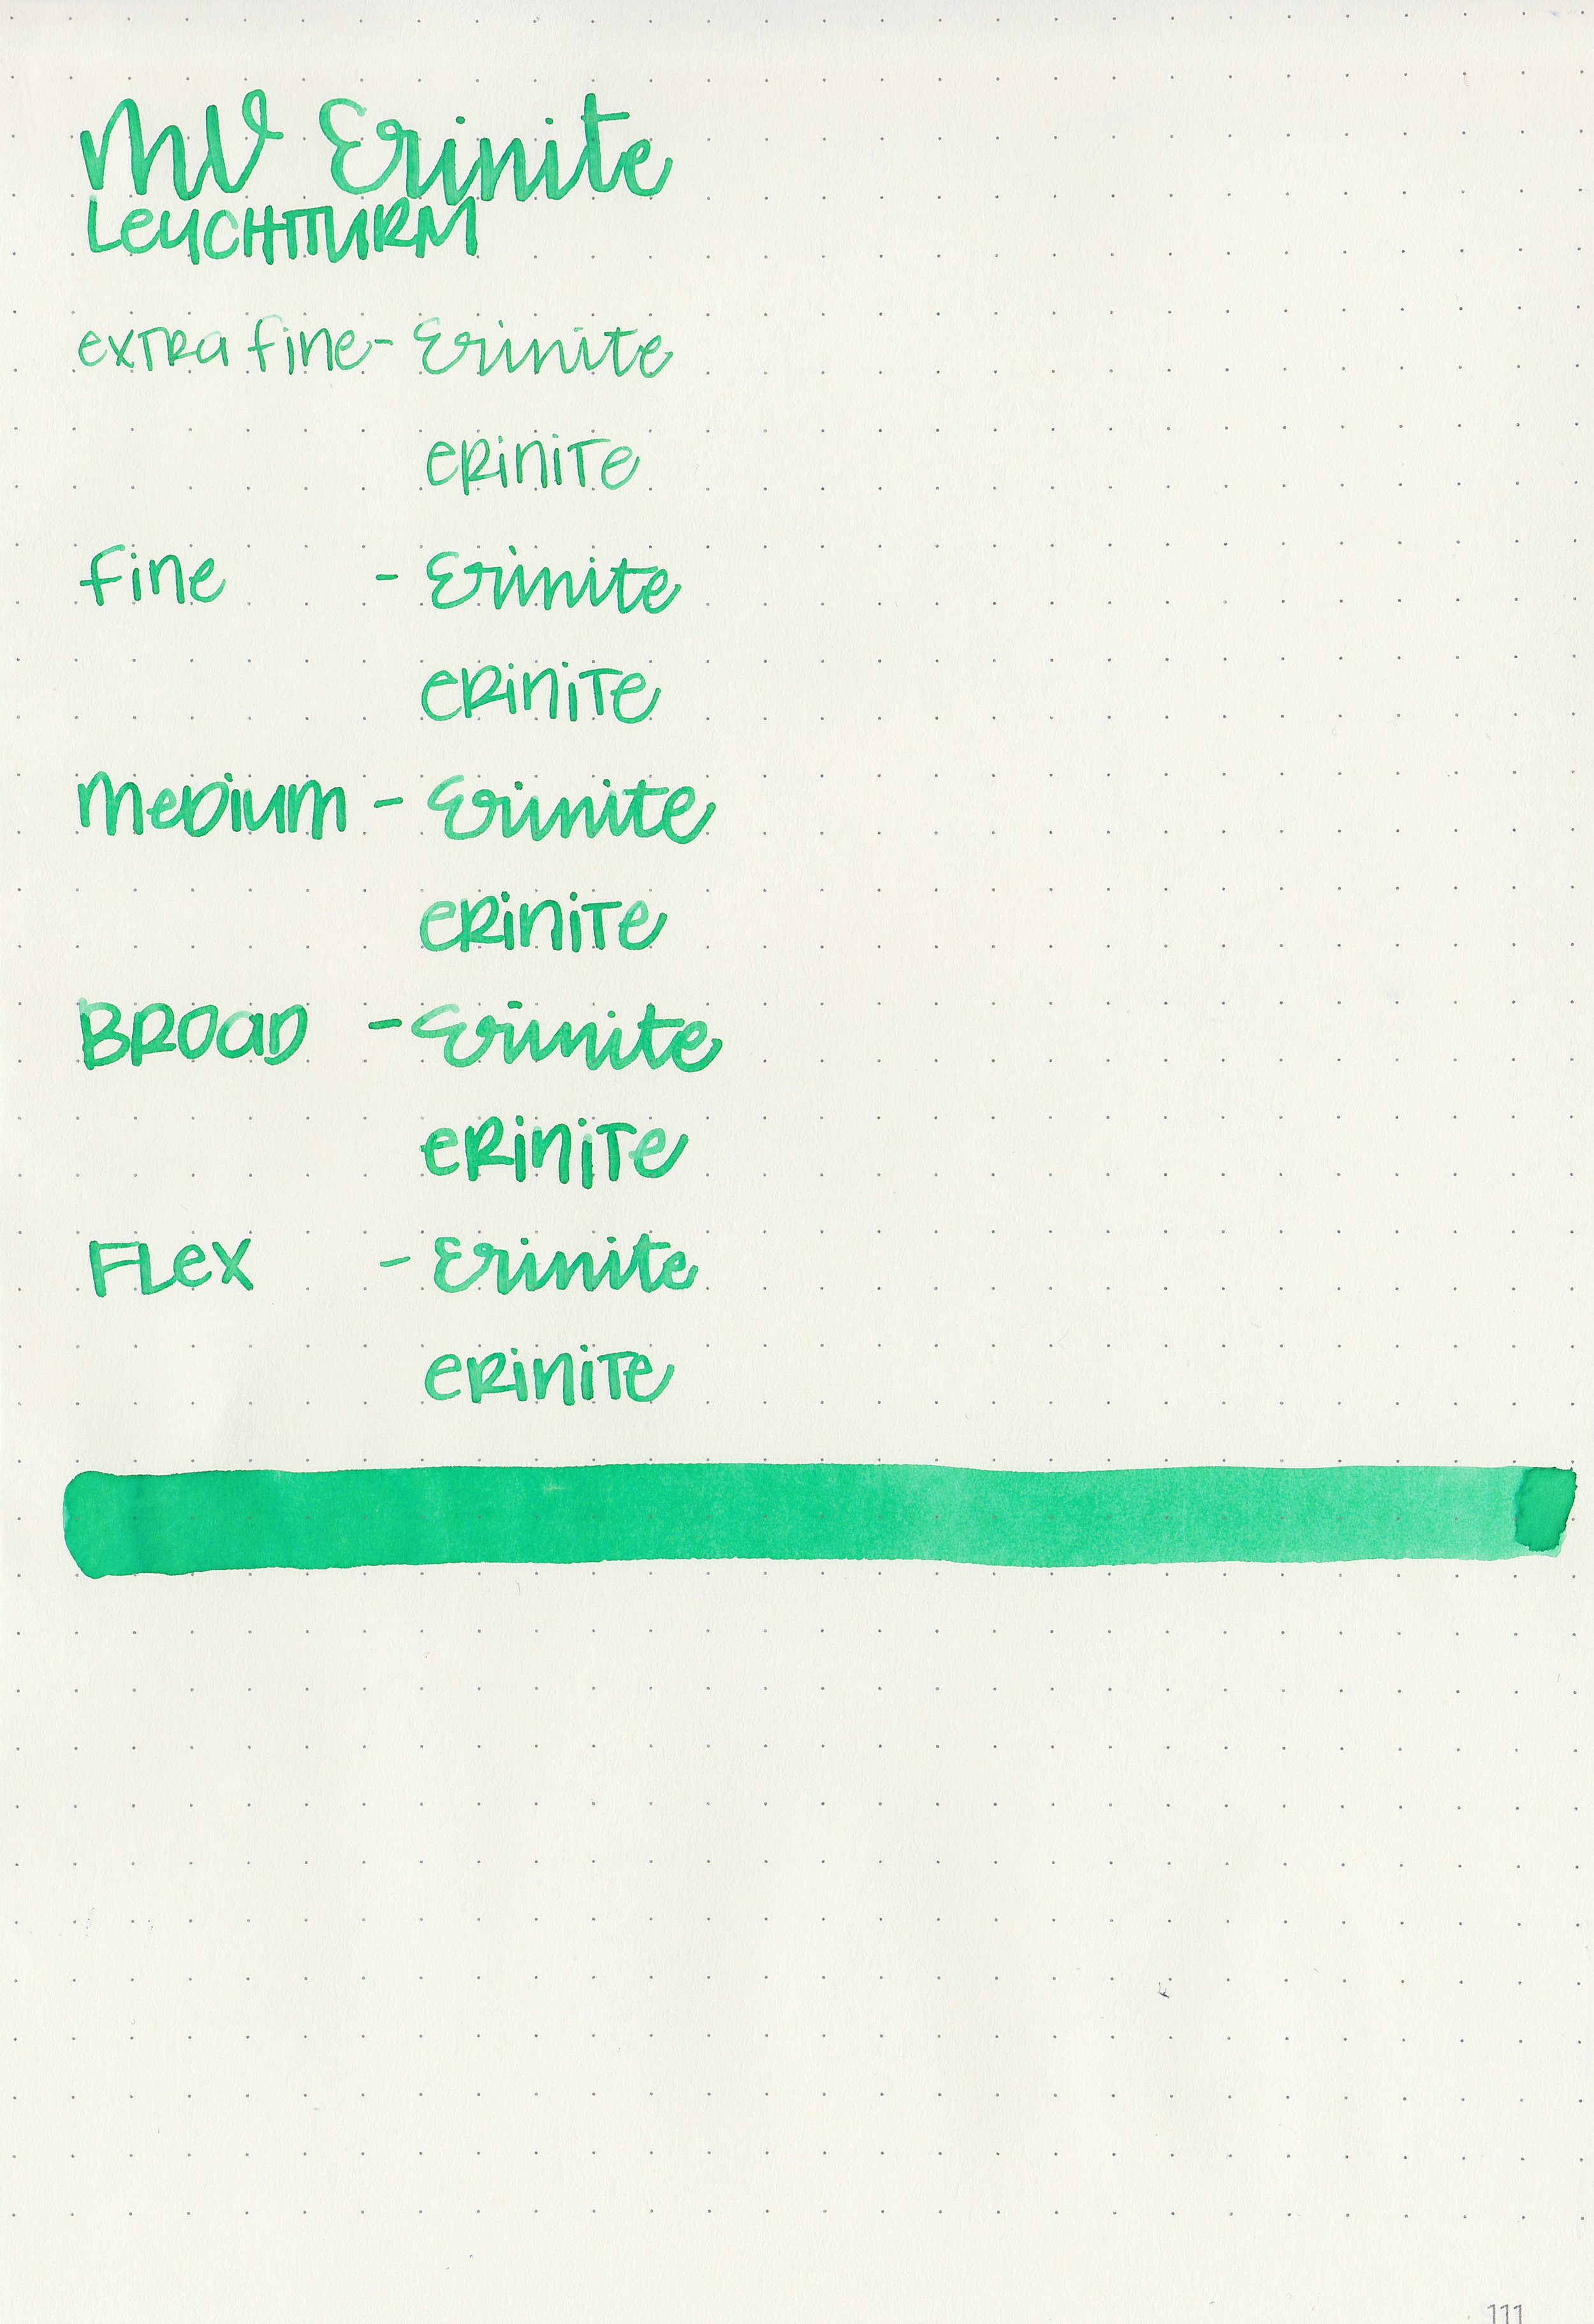 MV Erinite
LEUCHTTURM
extra fine - Erinite
erinite
fine - Erinite
erinite
Medium - Erinite
erinite
BROAD - Erinite
erinite
FLex - Erinite
erinite
111